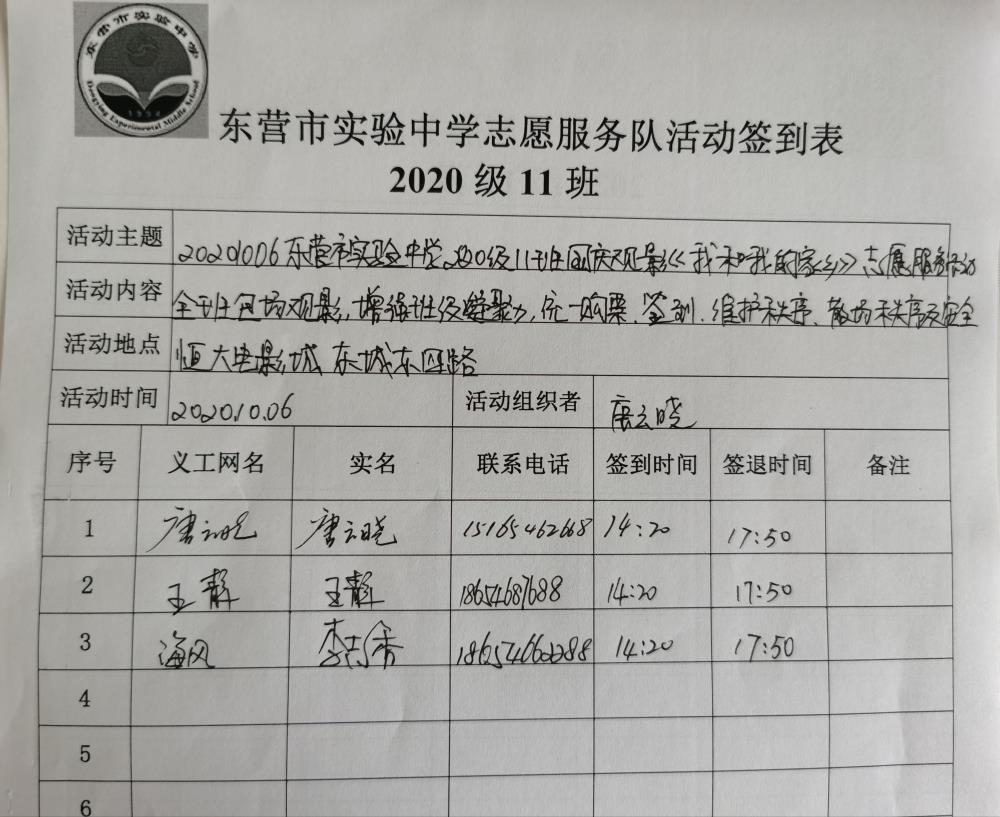 东营市实验中学
Dongying Experimental Middle School
1992
东营市实验中学志愿服务队活动签到表
2020 级 11 班
活动主题 20201006东营市实验中学2020级11班国庆观影《我和我的家乡》志愿服务活动
活动内容 全班包场观影,增强班级凝聚力,统一购票、签到、维护秩序、散场秩序及安全
活动地点 恒大电影城 东城东四路
活动时间 2020.10.06 活动组织者 唐云晓
序号 义工网名 实名 联系电话 签到时间 签退时间 备注
1 唐云晓 唐云晓 15165462668 14:20 17:50
2 王静 王静 18654687688 14:20 17:50
3 海风 14:20 17:50
4
5
6